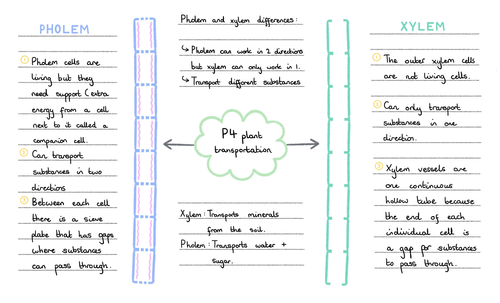 PHOLEM
① Pholem cells are
living but they
need support (extra
energy from a cell
next to it called a
companion cell.
② Can transport
substances in two
directions
③ Between each cell
there is a sieve
plate that has gaps
where substances
can pass through.
Pholem and xylem differences:
↳ Pholem can work in 2 directions
but xylem can only work in 1.
↳ Transport different substances
P4 plant
transportation
Xylem: Transports minerals
from the soil.
Pholem: Transports water +
sugar.
XYLEM
① The outer xylem cells
are not living cells.
② Can only transport
substances in one
direction.
③ Xylem vessels are
one continuous
hollow tube because
the end of each
individual cell is
a gap for substances
to pass through.